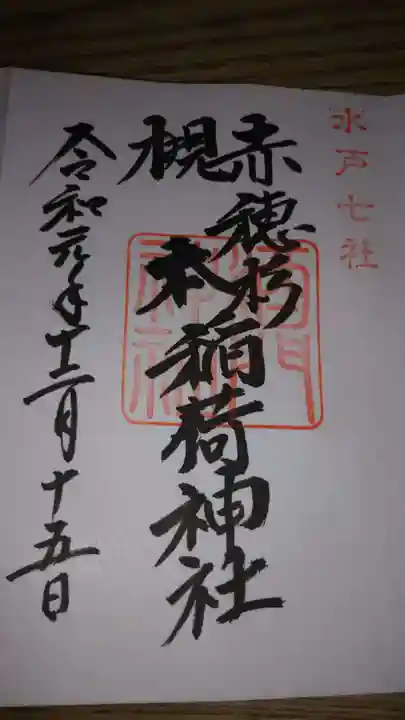 水戸七社
赤穂杉
槻本
稲荷神社
令和元年十二月十五日